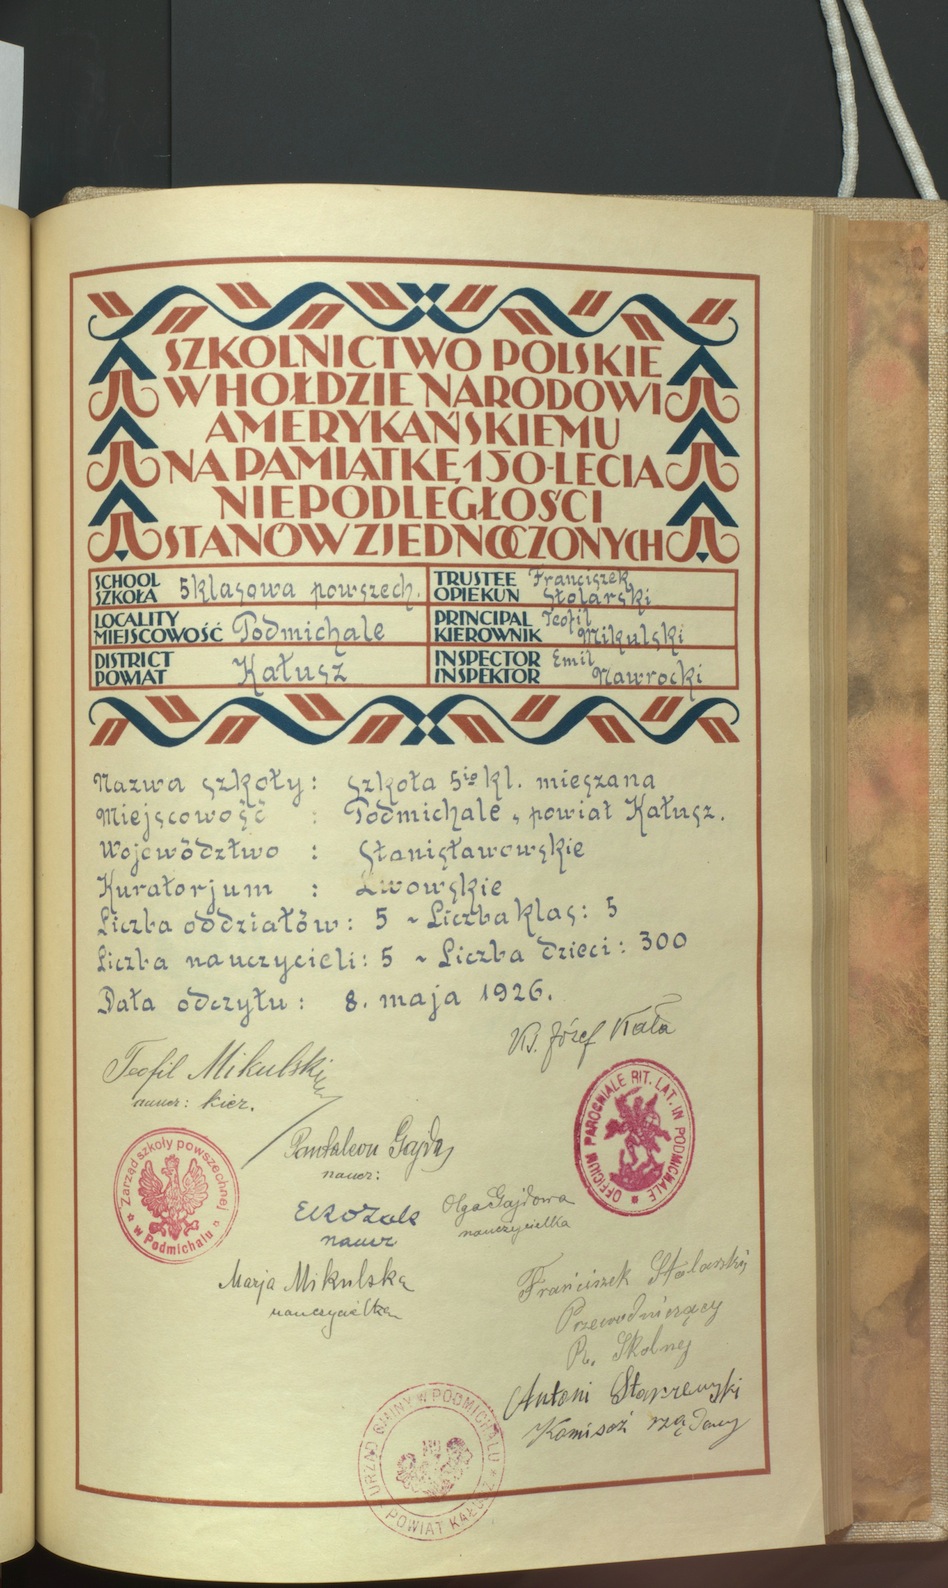 SZKOLNICTWO POLSKIE
W HOŁDZIE NARODOWI
AMERYKAŃSKIEMU
NA PAMIĄTKĘ 150-LECIA
NIEPODLEGŁOŚCI
STANÓW ZJEDNOCZONYCH
SCHOOL
SZKOŁA 5klasowa powszech.
TRUSTEE Franciszek
OPIEKUN Stolarski
LOCALITY
MIEJSCOWOŚĆ Podmichale
PRINCIPAL Teofil
KIEROWNIK Mikulski
DISTRICT
POWIAT Kałusz
INSPECTOR Emil
INSPEKTOR Nawrocki
Nazwa szkoły: szkoła 5io kl. mieszana
Miejscowość : Podmichale, powiat Kałusz.
Województwo : Stanisławowskie
Kuratorjum : Lwowskie
Liczba oddziałów: 5 ~ Liczba klas: 5
Liczba nauczycieli: 5 ~ Liczba dzieci: 300
Data odczytu: 8. maja 1926.
Ks. Józef Kała
Teofil Mikulski
naucz: kier.
Pantaleon Gajda
naucz:
OFFICIUM PAROCHIALE RIT. LAT. IN PODMICHALE
Zarząd szkoły powszechnej
w Podmichalu
EKozak
naucz
Olga Gajdowa
nauczycielka
Marja Mikulska
nauczycielka
Franciszek Stolarski
Przewodniczący
R. Skolnej
Antoni Starzewski
Komisaż rządowy
URZĄD GMINY W PODMICHALU
POWIAT KAŁUSZ